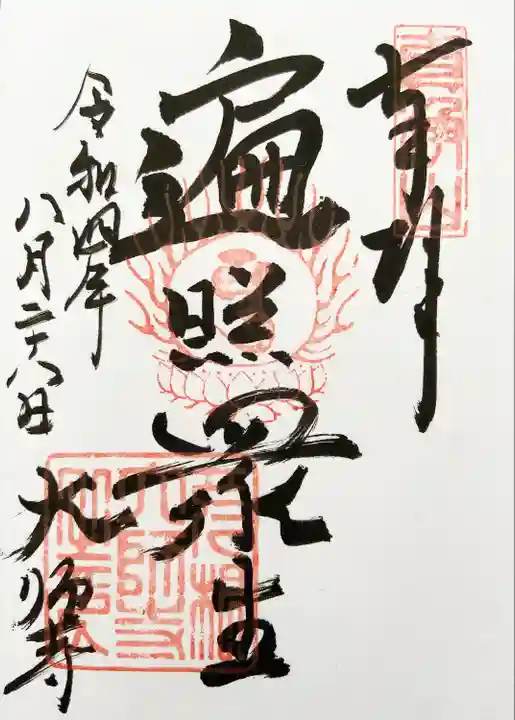 奉拝
遍照衆生
令和四年
八月二十八日
大師寺